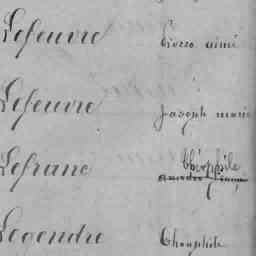 Lefeuvre Pierre aimé
Lefeuvre Joseph marie
Lefranc Théophile
Legendre Théophile